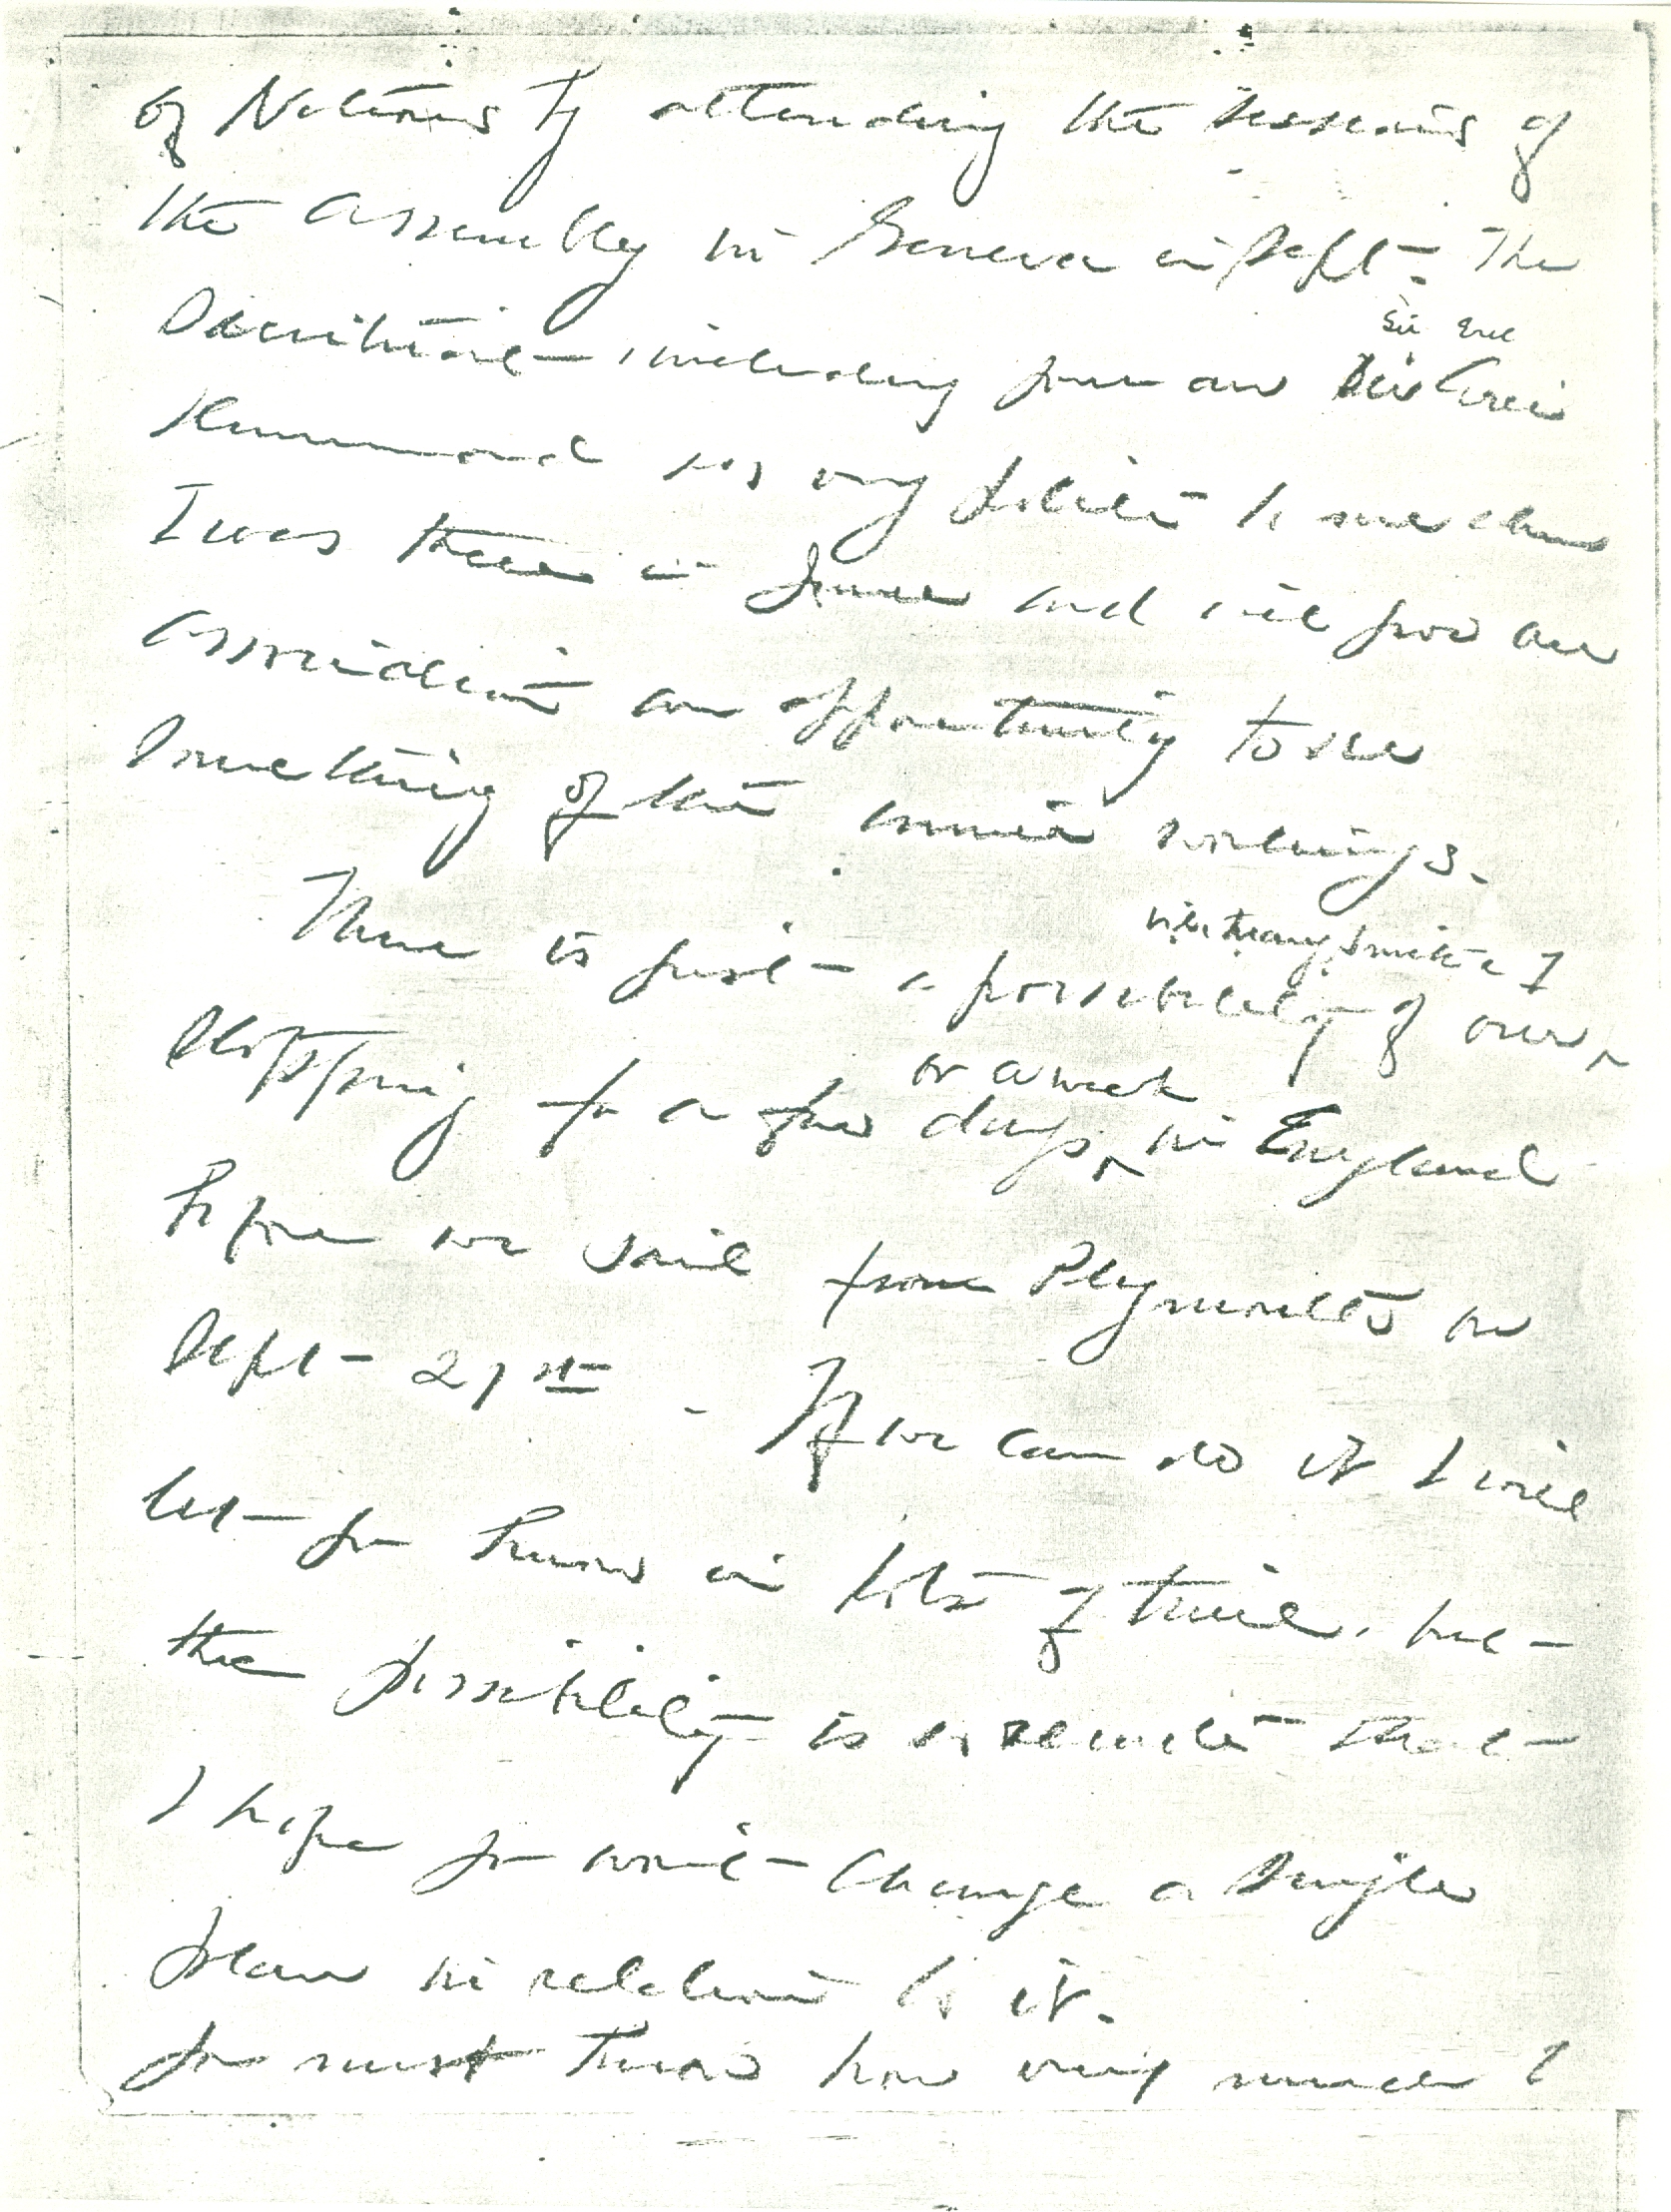 of Nations by attending the sessions of
the Assembly in Geneva in Sept. The
Secretariat, including your own
Sir Eric
Drummond was very polite to me when
I was there in June and will give our
association an opportunity to see
something of the inner workings.
There is just a possibility of our
Mary Smith & I
stopping for a few days in England
or a week
before we sail from Plymouth on
Sept 21st. If we can do it I will
let you know in lots of time, but
the possibility is so remote that
I hope you won't change a single
plan in relation to it.
You must know how very much I